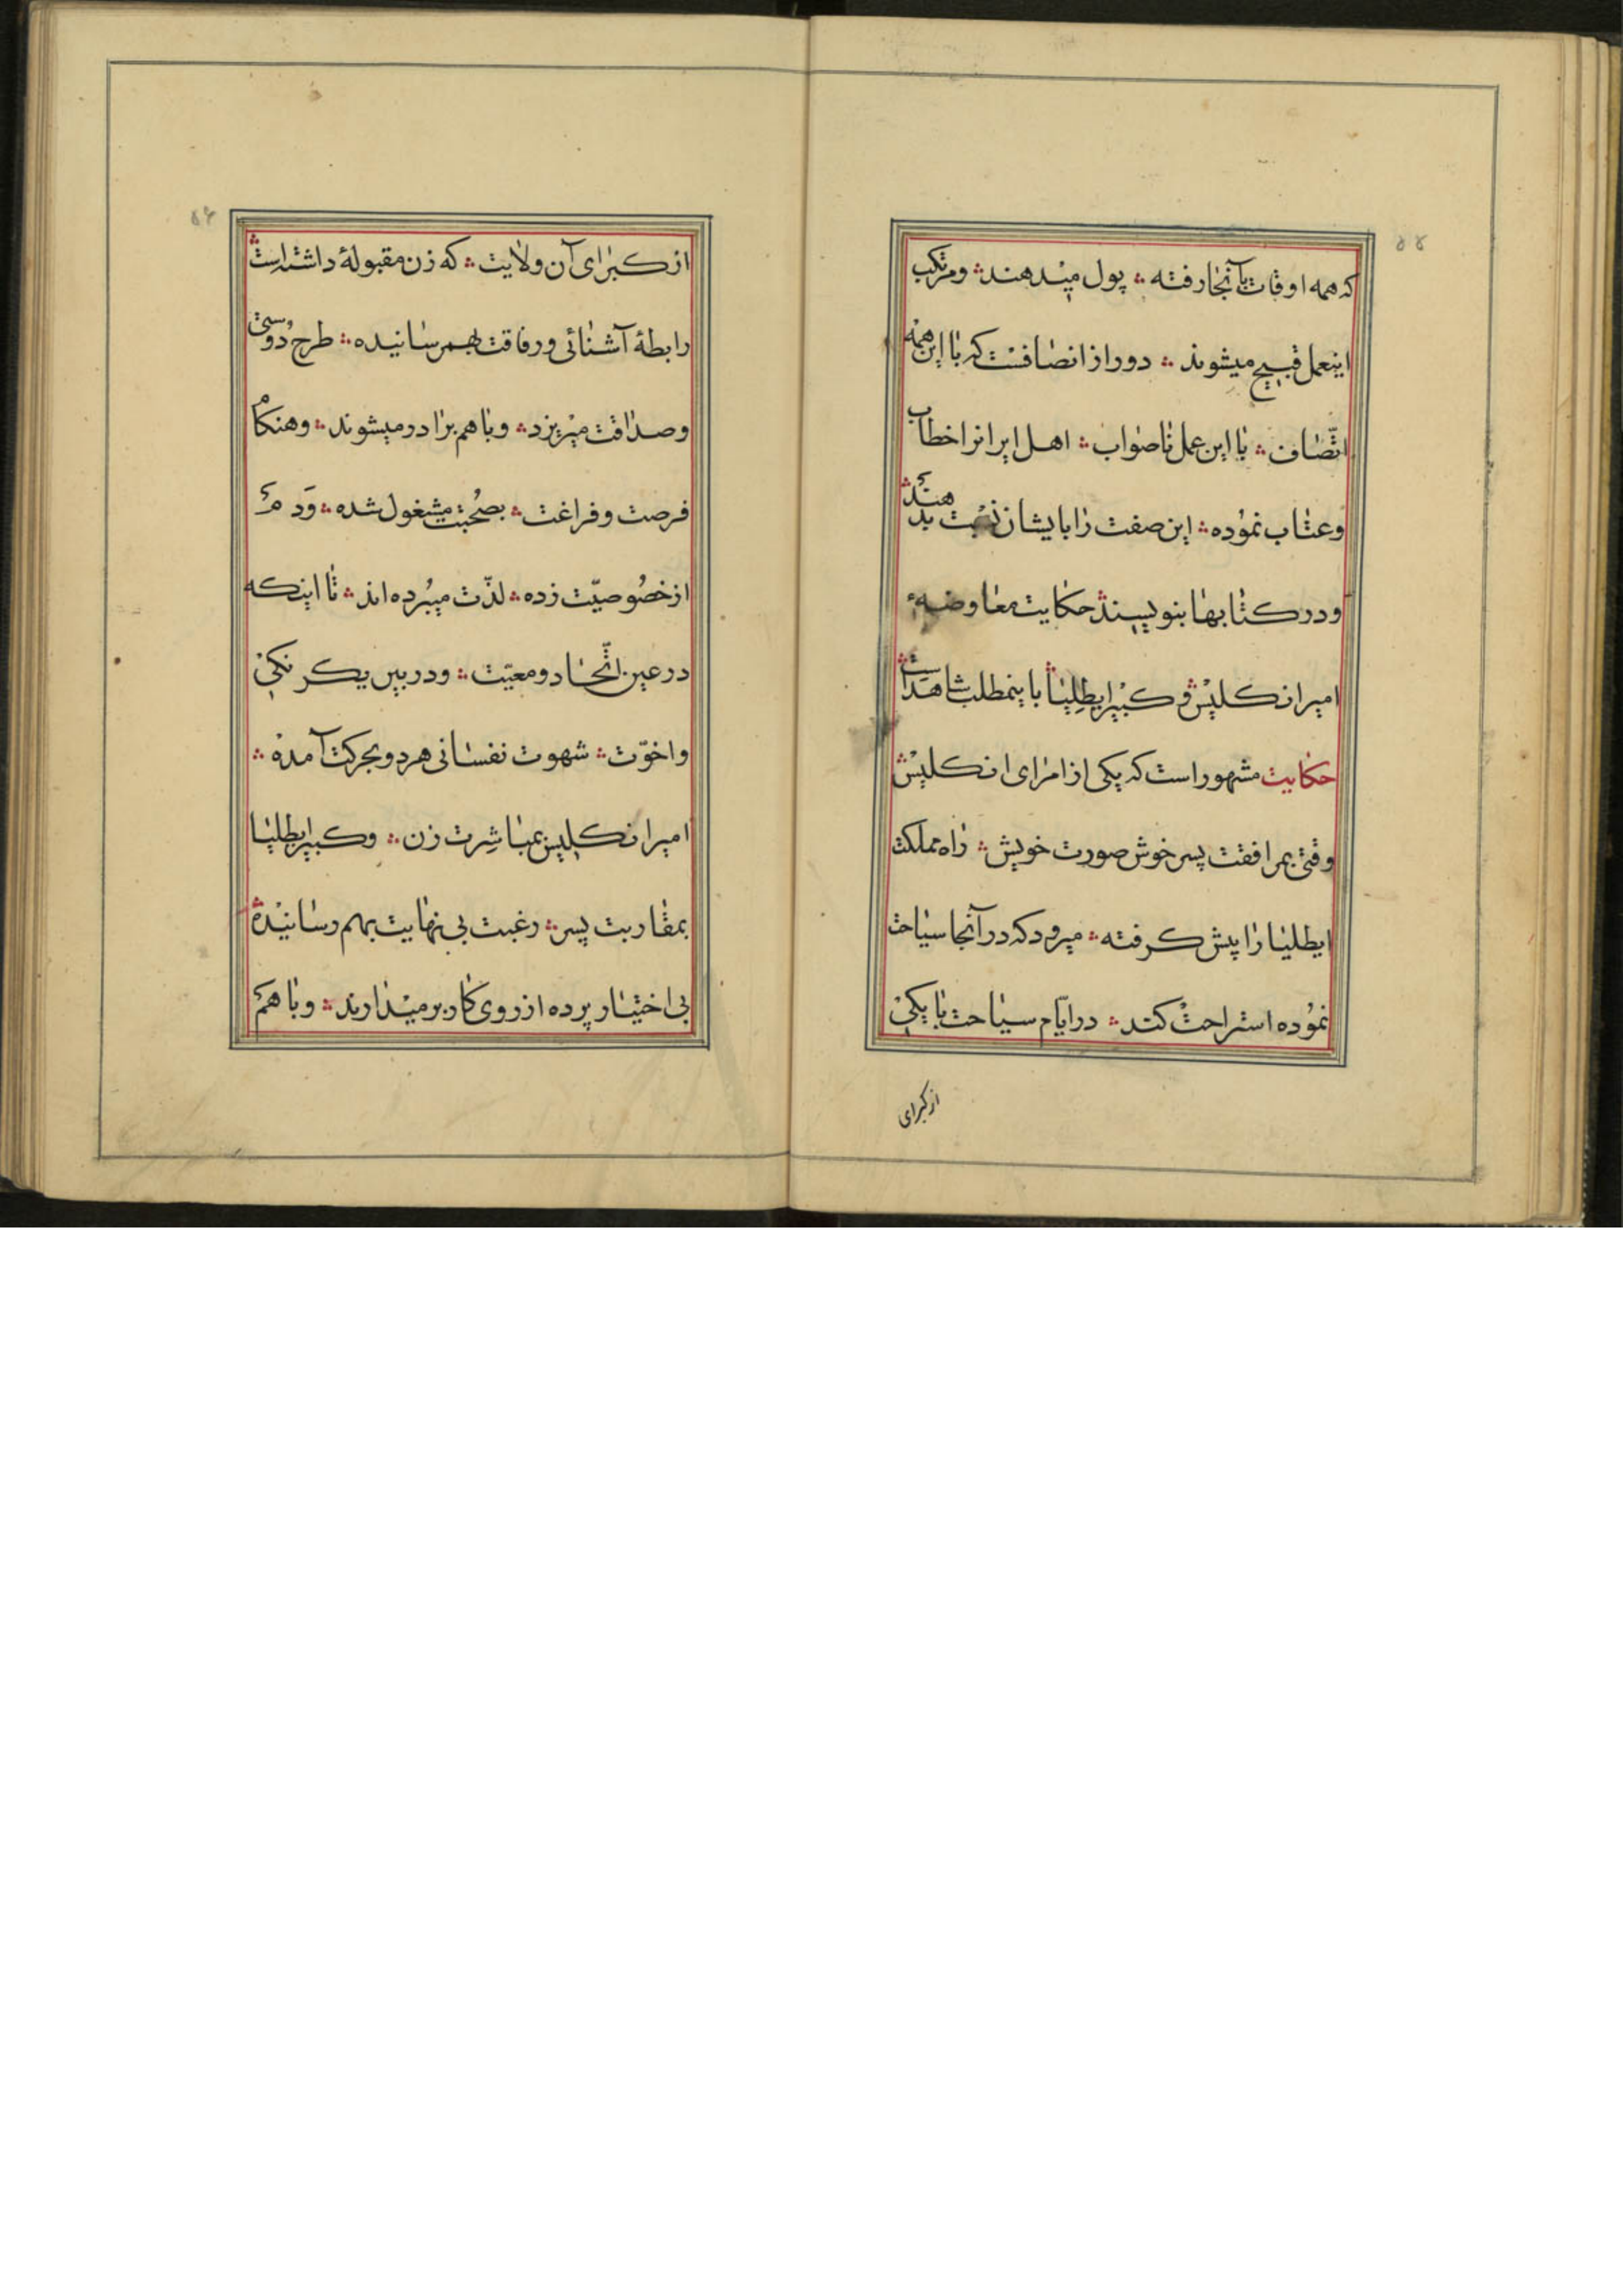 ۵۵
که همه اوقات بآنجا رفته ؞ پول میدهند ؞ و مرتکب
اینعمل قبیح میشوند ؞ دور از انصافست که با این همه
اتّصاف ؞ با این عمل ناصواب ؞ اهل ایرانرا خطاب
وعتاب نموده ؞ این صفت را بایشان نسبت بدهند ؞
ودر کتابها بنویسند ؞ حکایت معاوضهٔ
امیر انکلیس ؞ و کبیر ایطلیا ؞ باینمطلب شاهد است ؞
حکایت مشهور است که یکی از امرای انکلیس ؞
وقتی بمرافقت پسر خوش صورت خویش ؞ راه مملکت
ایطلیا را پیش کرفته ؞ میرود که در آنجا سیاحت
نموده استراحت کند ؞ در ایّام سیاحت با یکی
از کبرای
۵۶
از کبرای آن ولایت ؞ که زن مقبولهٔ داشته است ؞
رابطهٔ آشنائی و رفاقت بهمرسانیده ؞ طرح دوستی
وصداقت میریزد ؞ وبا هم برادر میشوند ؞ وهنکام
فرصت و فراغت ؞ بصُحبت مشغول شده ؞ وَدم
از خصُوصیّت زده ؞ لذّت میبُرده اند ؞ تا اینکه
در عین اتّحاد و معیّت ؞ ودر بین یکرنکی
واخوّت ؞ شهوت نفسانی هر دو بحرکت آمده ؞
امیر انکلیس بمباشِرت زن ؞ وکبیر ایطلیا
بمقاربت پسر ؞ رغبت بی نهایت بهم رسانیده ؞
بی اختیار پرده از روی کار برمیدارند ؞ وبا هم